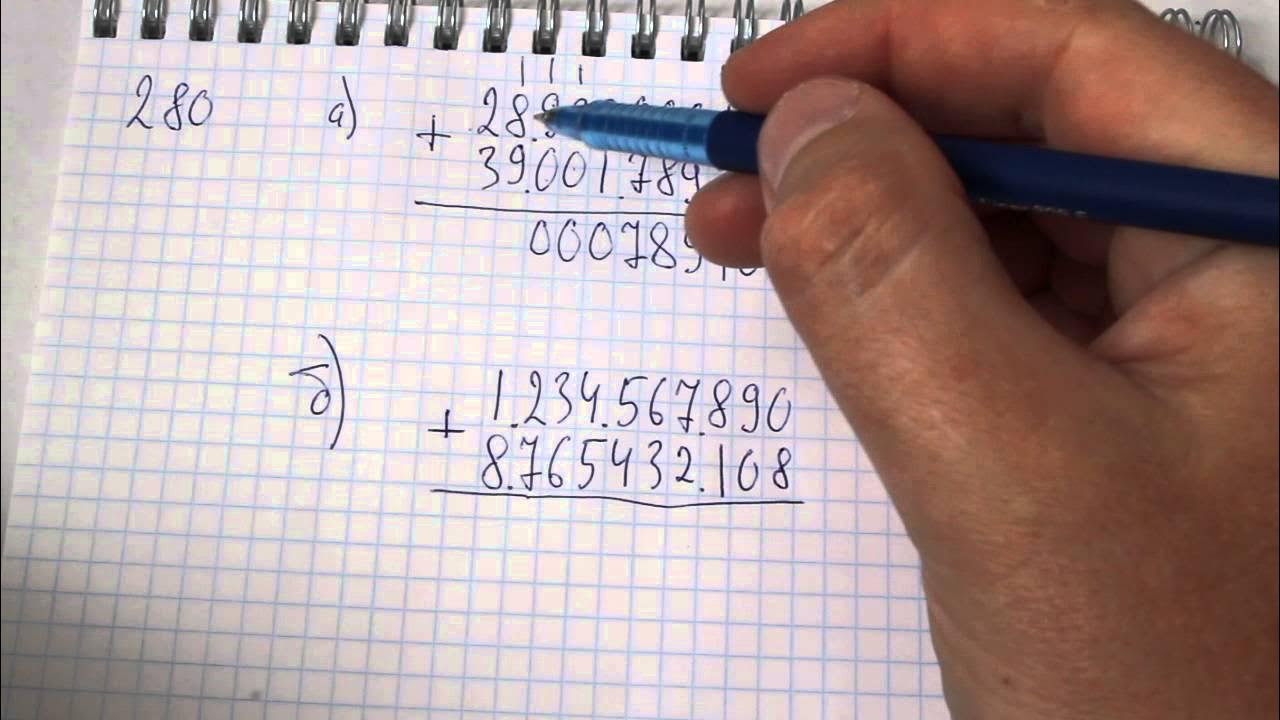 280
а)
1 1 1
+ 28.9
39.001.789
0007891
б)
1.234.567.890
+ 8.765432.108